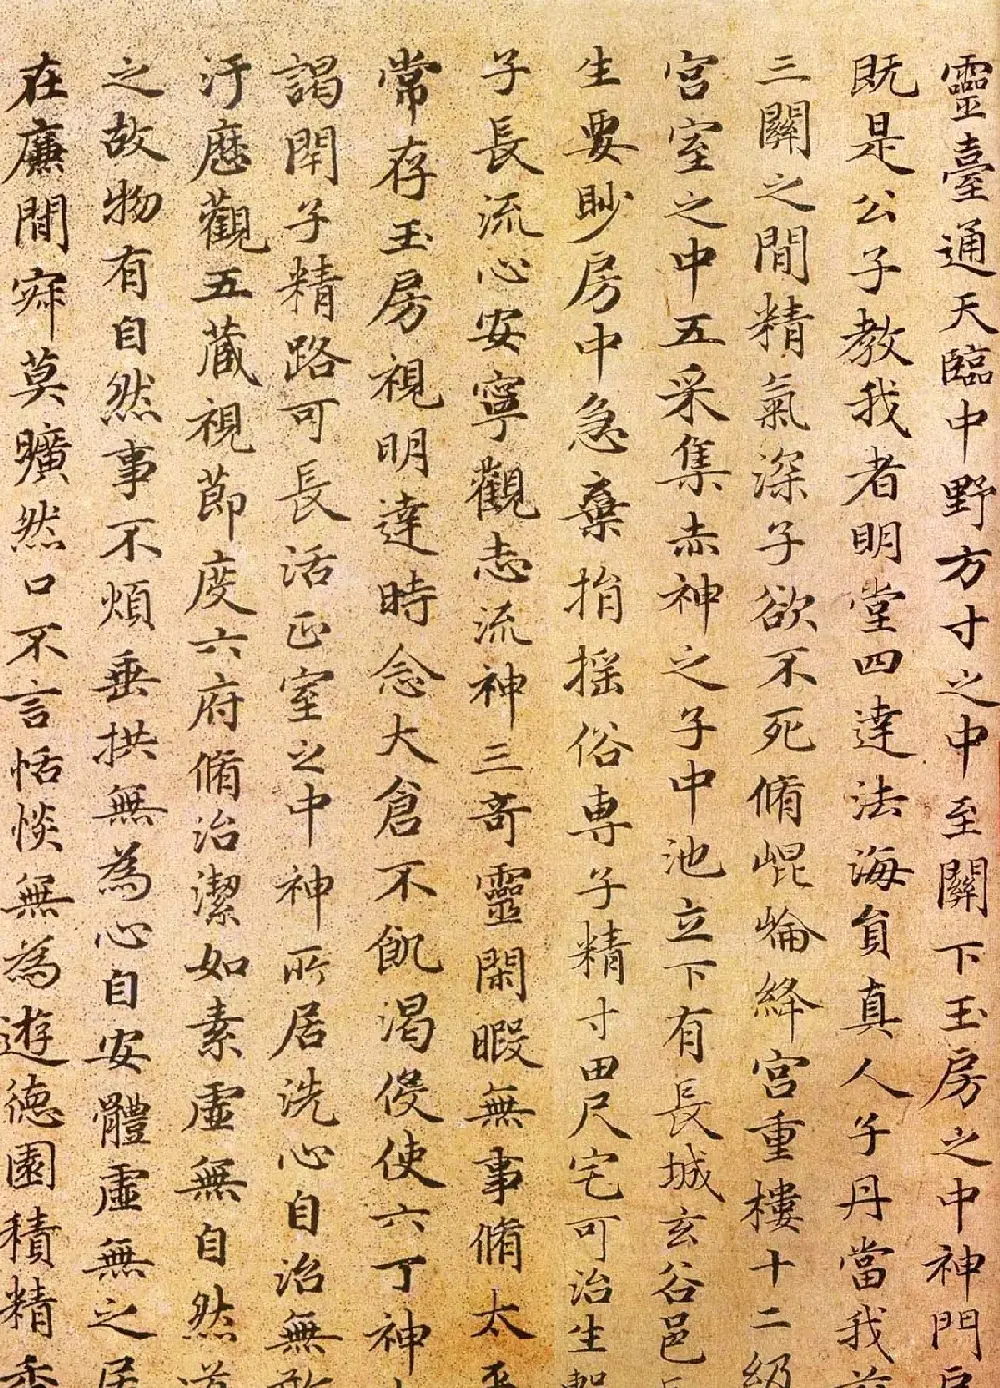 靈臺通天臨中野方寸之中至關下玉房之中神門戶
既是公子教我者明堂四達法海負真人子丹當我前
三關之間精氣深子欲不死脩崐崘絳宮重樓十二級
宮室之中五采集赤神之子中池立下有長城玄谷邑長
生要眇房中急棄捐搖俗專子精寸田尺宅可治生
子長流心安寧觀志流神三奇靈閑暇無事脩太平
常存玉房視明達時念大倉不飢渴侵使六丁神
謁閇子精路可長活正室之中神所居洗心自治無敢
汙歷觀五藏視節度六府脩治潔如素虛無自然道
之故物有自然事不煩垂拱無為心自安體虛無之居
在廉間寂莫曠然口不言恬惔無為遊德園積精香